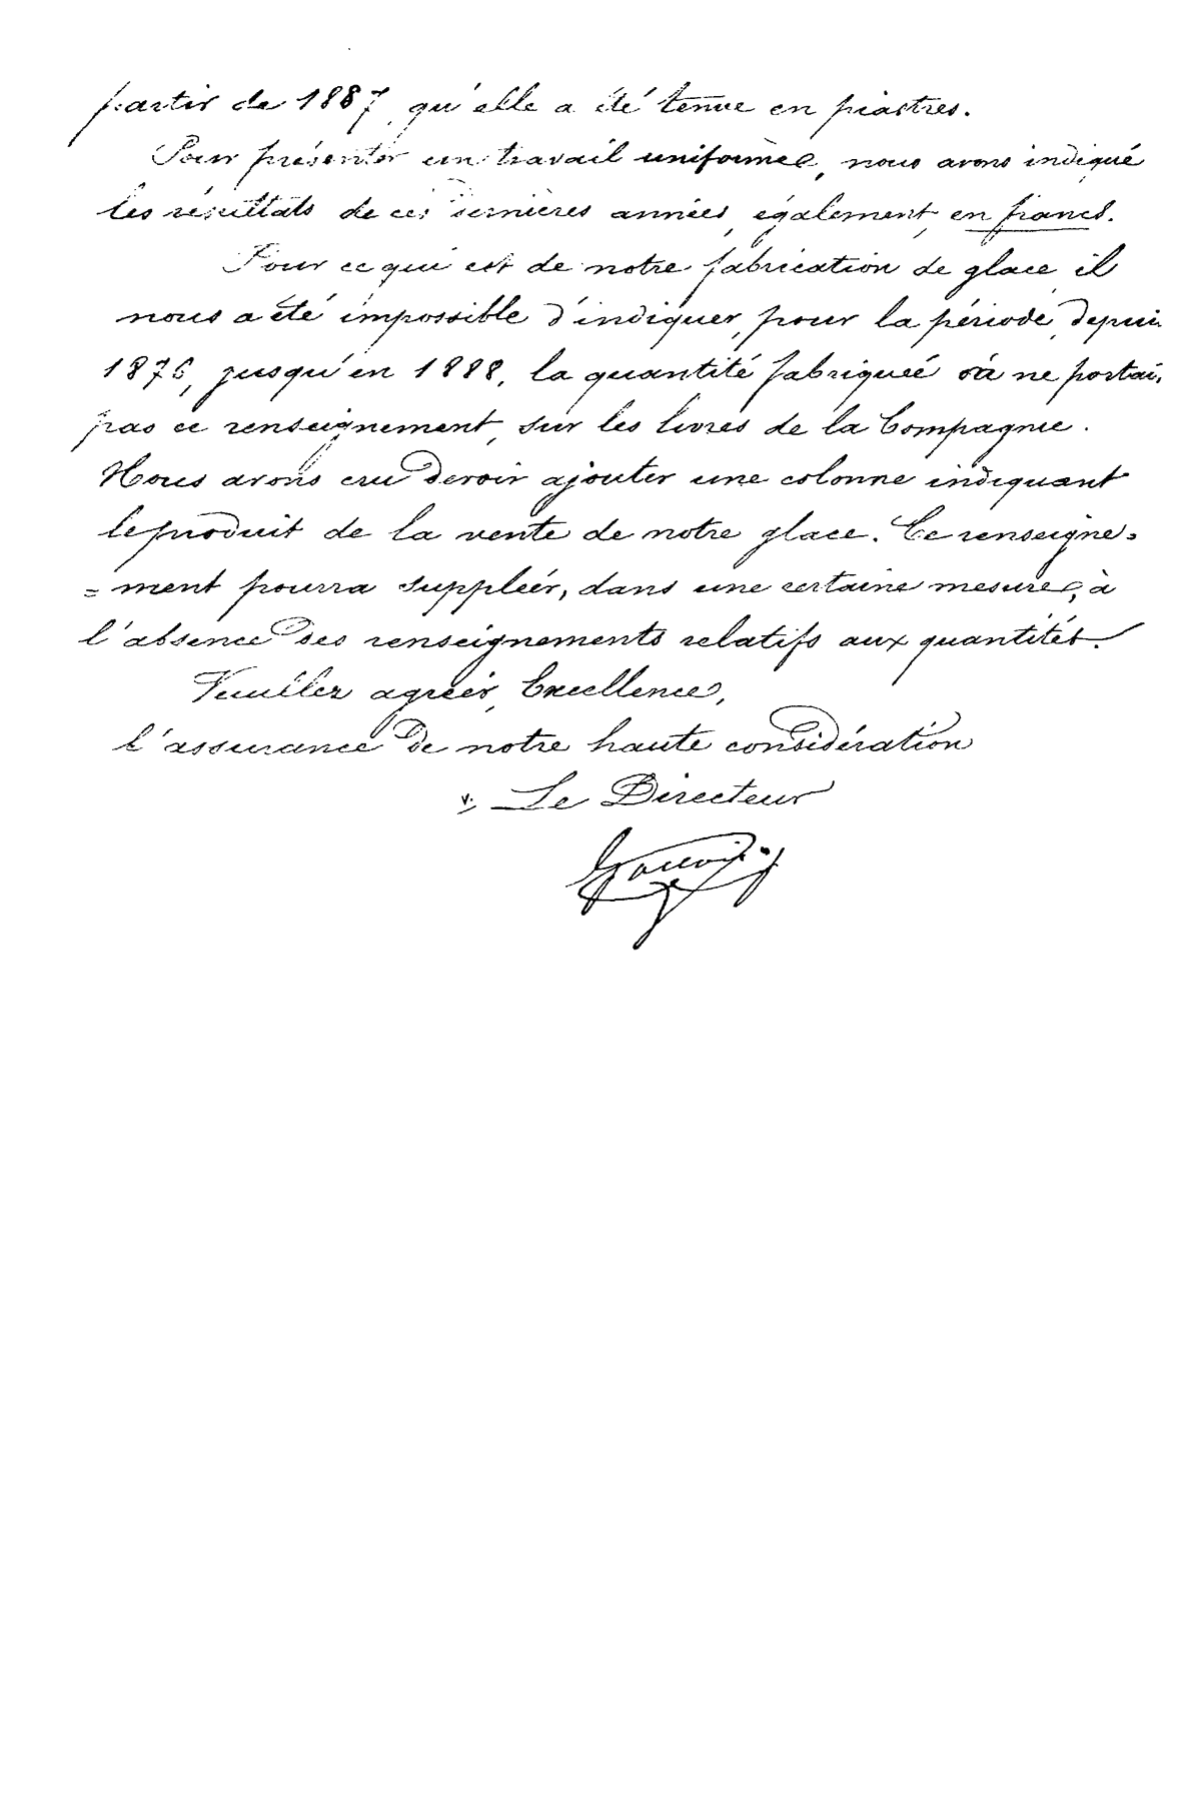 partir de 1887, qu'elle a été tenue en piastres.
Pour présenter un travail uniforme, nous avons indiqué
les résultats de ces dernières années, également, en francs.
Pour ce qui est de notre fabrication de glace, il
nous a été impossible d'indiquer, pour la période, depuis
1876, jusqu'en 1888, la quantité fabriquée où ne portai
pas ce renseignement, sur les livres de la Compagnie.
Nous avons cru devoir ajouter une colonne indiquant
le produit de la vente de notre glace. Ce renseigne=
=ment pourra suppléer, dans une certaine mesure, à
l'absence des renseignements relatifs aux quantités.
Veuillez agréer, Excellence,
l'assurance de notre haute considération
Le Directeur